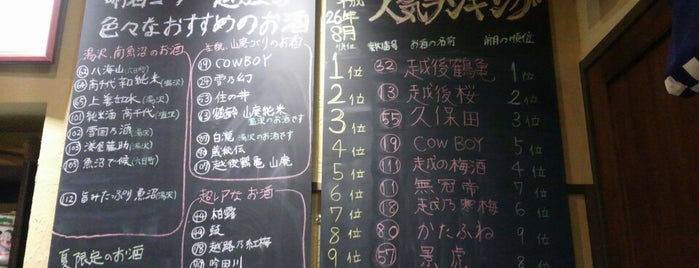 色々なおすすめのお酒
湯沢、南魚沼のお酒
64 八海山(六日町)
66 高千代 和 純米(塩沢)
65 上善如水(湯沢)
101 純生酒 高千代(塩沢)
102 雪国の酒(湯沢)
103 湊屋藤助(湯沢)
105 魚沼で候(六日町)
112 旨みたっぷり魚沼(湯沢)
夏限定のお酒
生酛、山廃づくりのお酒
19 COWBOY
24 雪乃幻
23 住の井
鶴齢 山廃純米
湯沢のお酒です
白瀧 湯沢のお酒です
越後鶴亀 山廃
超レアなお酒
44 柏露
49 鼓
78 越路乃紅梅
吟田川
平成26年8月
人気ランキング
順位 酒番号 お酒の名前 前月の順位
1位 62 越後鶴亀 1位
2位 13 越後桜 2位
3位 55 久保田 3位
4位 19 COW BOY 4位
5位 111 越の梅酒 5位
6位 11 無冠帝 6位
7位 18 越乃寒梅 7位
8位 80 かたふね 9位
9位 57 景虎 8位